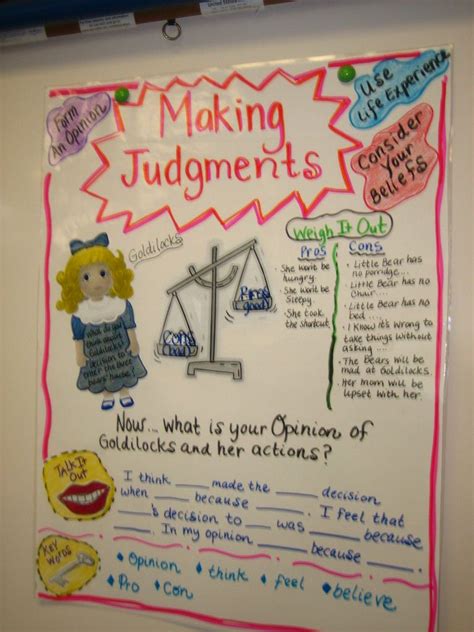 Form
An Opinion
Making
Judgments
Use
Life Experience
Consider
Your
Beliefs
Goldilocks
what do you
think about
Goldilocks'
decision to
enter the three
bears' house?
Cons
(bad)
Pros
(good)
Weigh It Out
Pros
She won't be
hungry.
She won't be
sleepy.
She took
the shortcut.
Cons
Little Bear has
no porridge...
Little Bear has no
chair....
Little Bear has no
bed ....
I know it's wrong to
take things without
asking ....
The bears will be
mad at Goldilocks.
Her mom will be
upset with her.
Now... what is your Opinion of
Goldilocks and her actions?
Talk It
Out
I think ____ made the ____ decision
when ____ because ____. I feel that
____'s decision to ____ was ____ because
____. In my opinion ____ because ____.
Key
Words
Opinion
think
feel
believe
Pro
Con